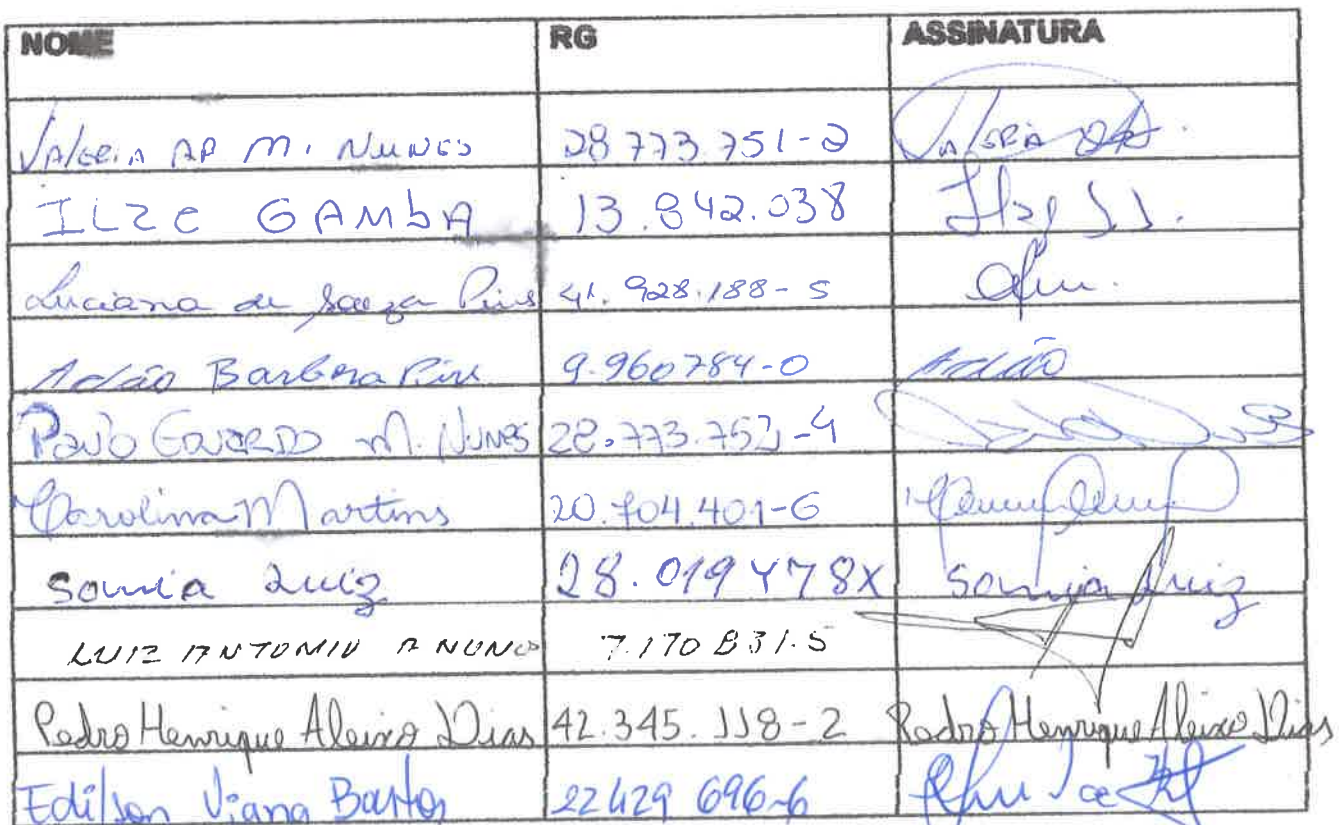 NOME RG ASSINATURA
Valeria AP M. Nunes 28.773.751-2 Valeria
ILZE GAMbA 13.842.038
Luciana de Souza Pires 41.928.188-5
Adão Barbosa Pires 9.960784-0 Adão
Paulo Eduardo M. Nunes 28.773.752-4
Carolina Martins 20.704.401-6
Sonia Luiz 28.019478X Sonia Luiz
LUIZ ANTONIO A NUNES 7.170831.5
Pedro Henrique Aleixo Dias 42.345.118-2 Pedro Henrique Aleixo Dias
Edilson Viana Bastos 22429 696-6